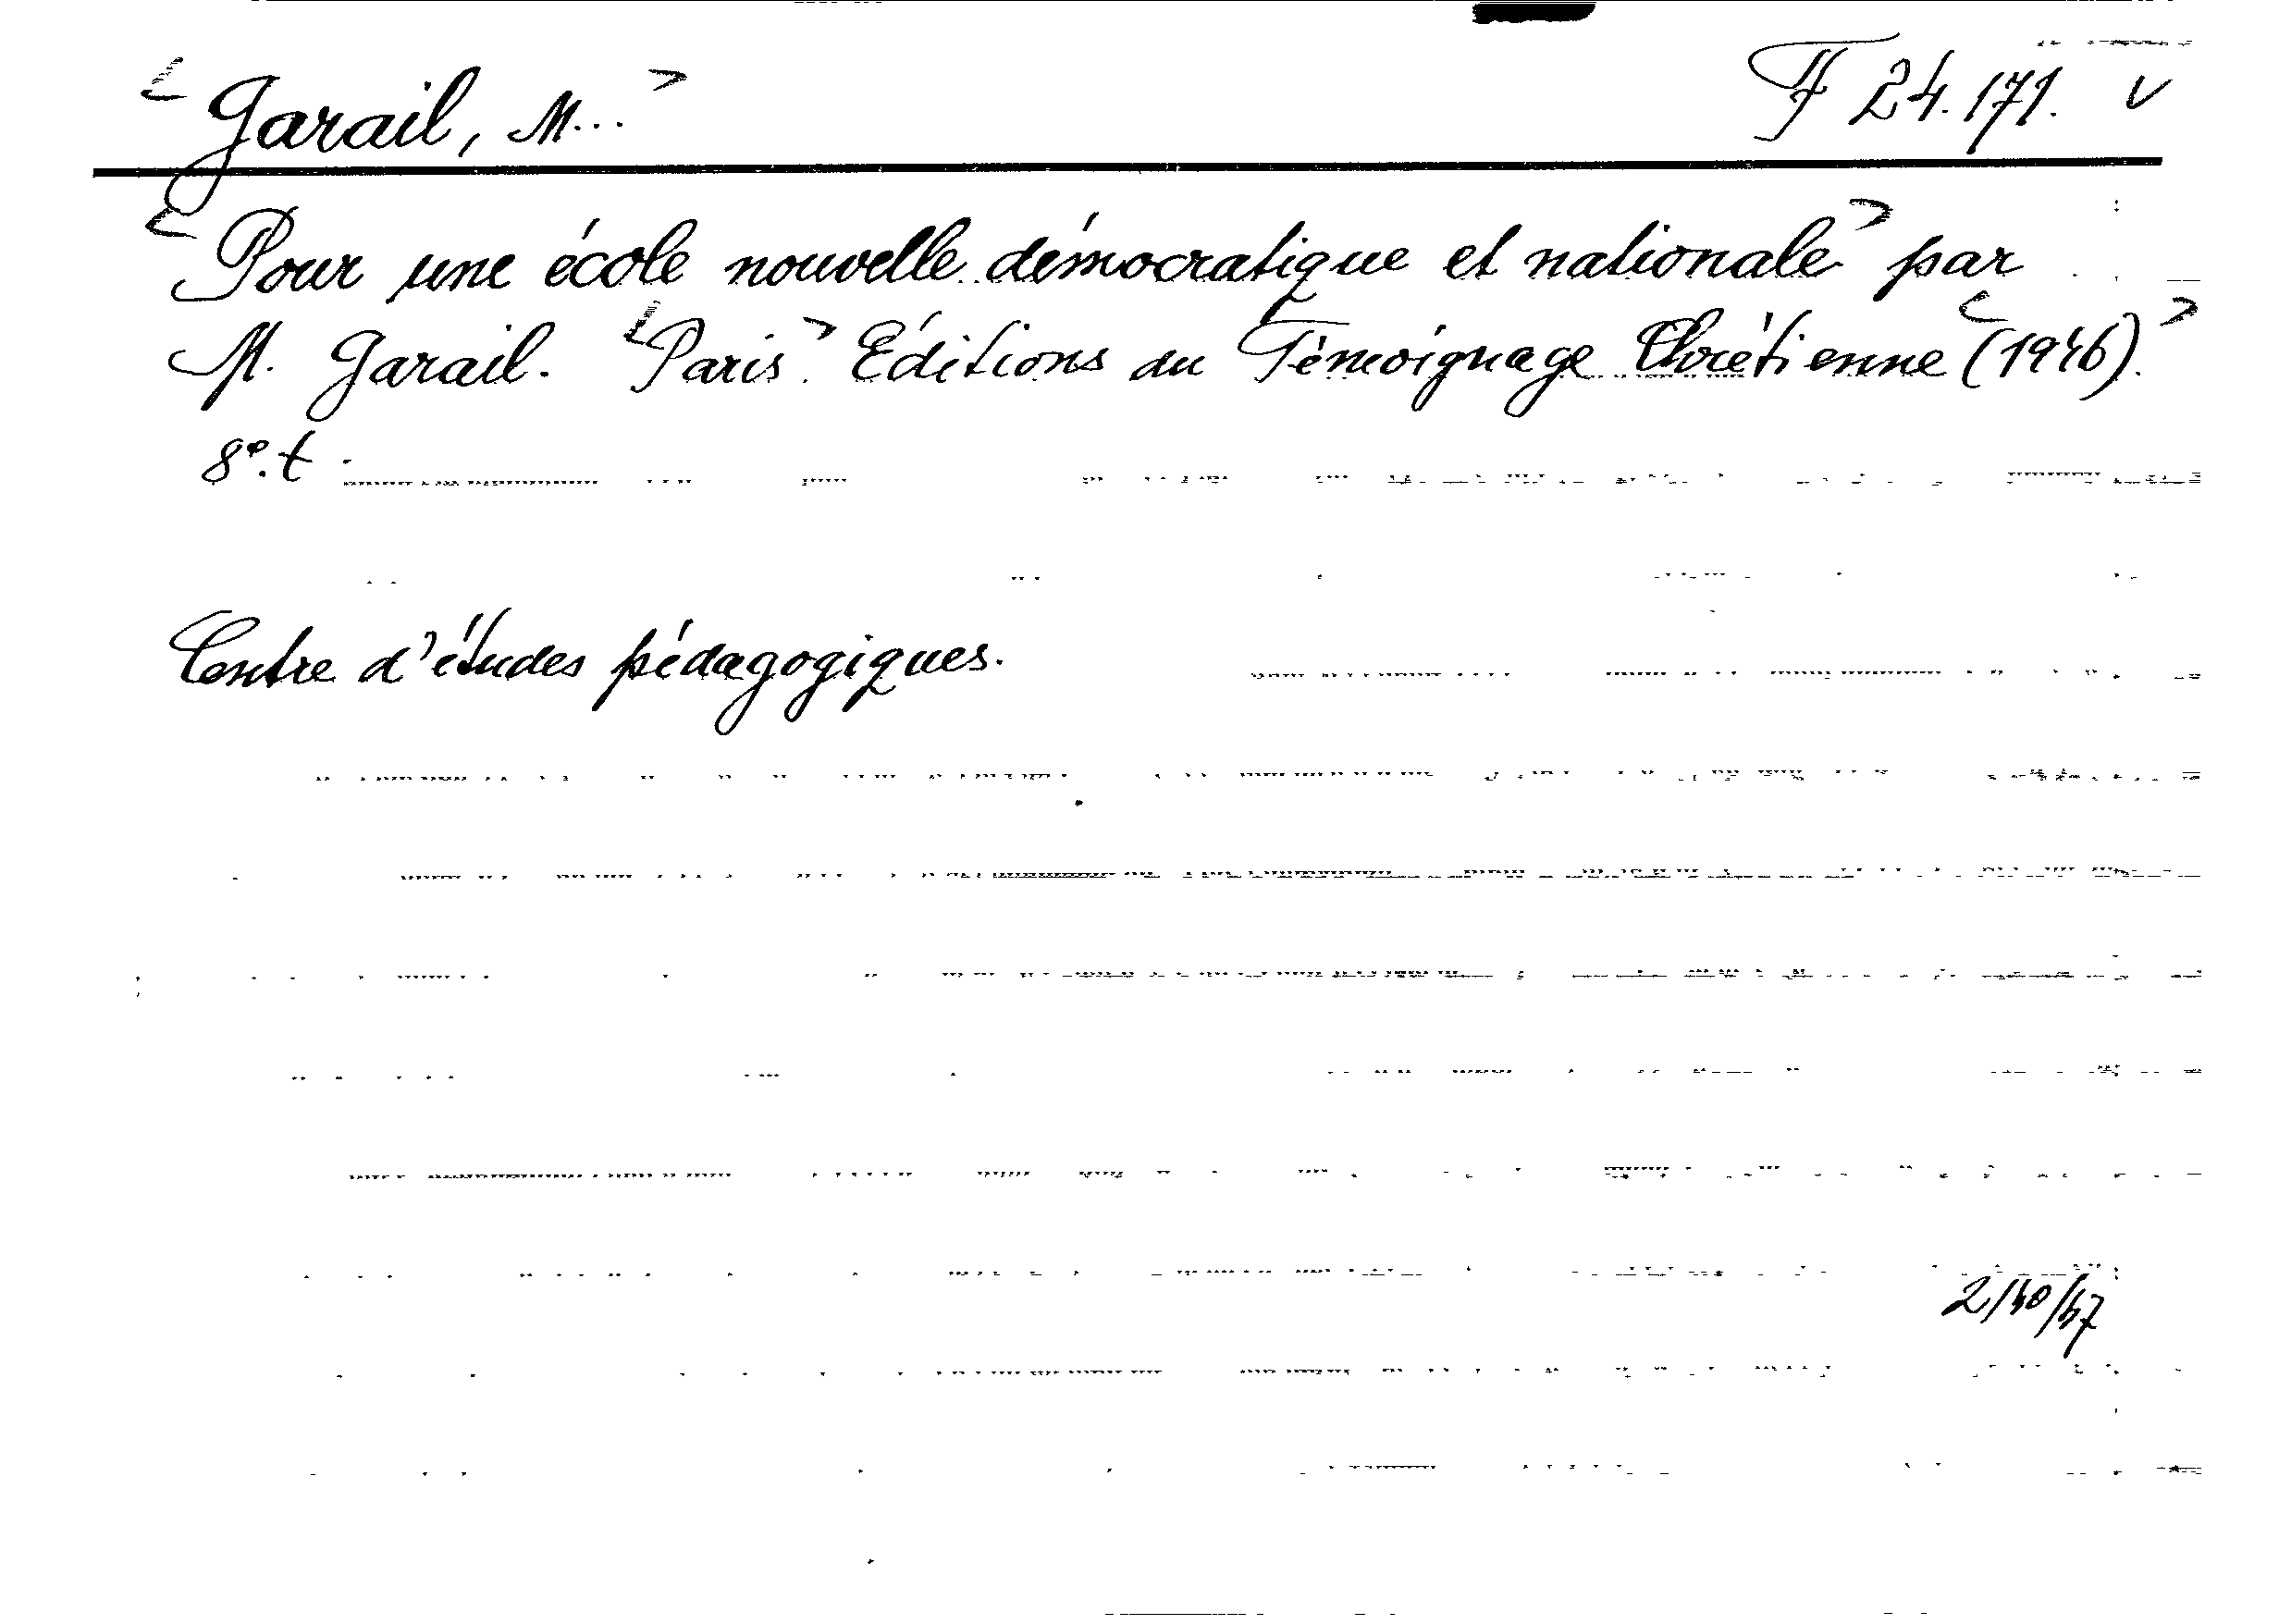 < Garail, M... > F 24.171. v
< Pour une école nouvelle démocratique et nationale > par
M. Garail. < Paris > Éditions du Témoignage Chrétienne < (1946). >
8º. t.
Centre d'études pédagogiques.
2/10/47